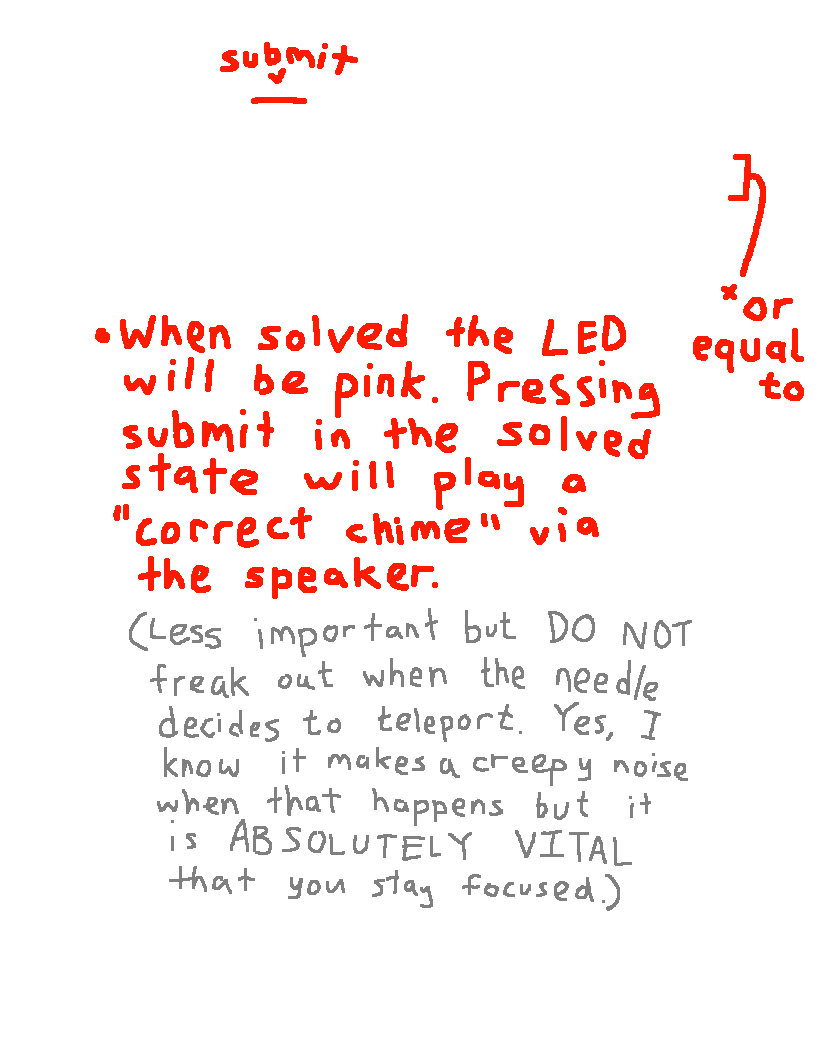 submit
* or
equal
to
• When solved the LED
will be pink. Pressing
submit in the solved
state will play a
"correct chime" via
the speaker.
(Less important but DO NOT
freak out when the needle
decides to teleport. Yes, I
know it makes a creepy noise
when that happens but it
is ABSOLUTELY VITAL
that you stay focused.)